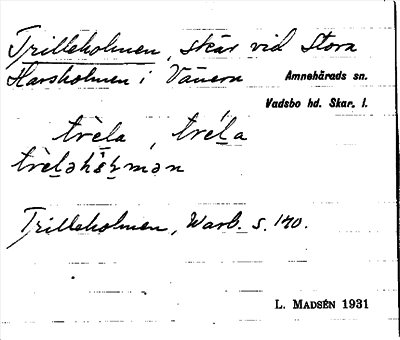 Trilleholmen, skär vid Stora
Harsholmen i Vänern Amnehärads sn.
Vadsbo hd. Skar. l.
Trilleholmen, Warb. s. 170.
L. MADSÉN 1931